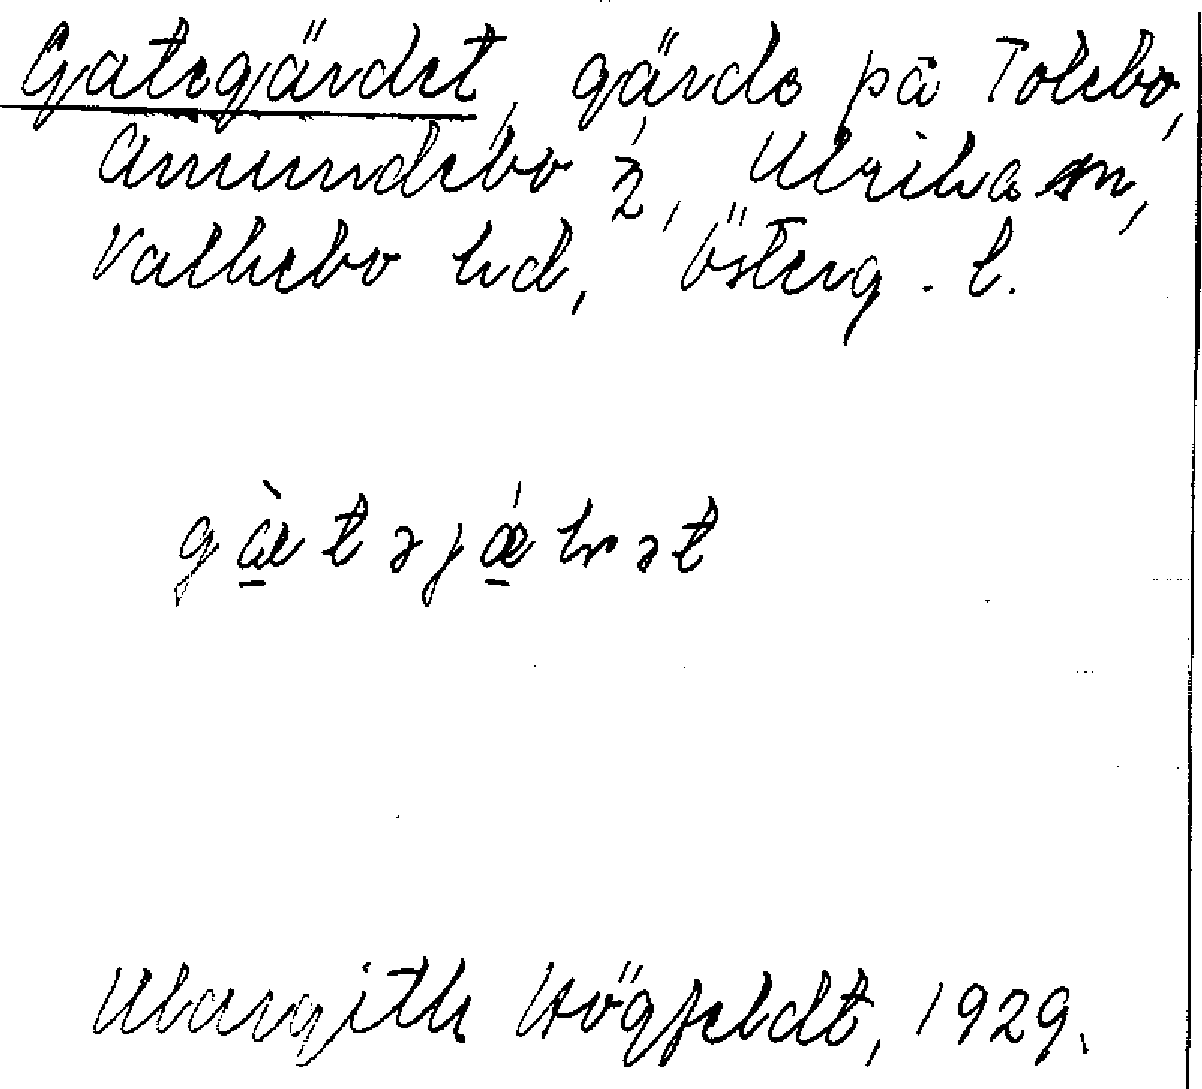 Gategärdet, gärde på Tolebo,
Amundebo 1/2, Ulrika sn,
Vallkebo hd, Österg. l.
Margith Högfeldt, 1929.